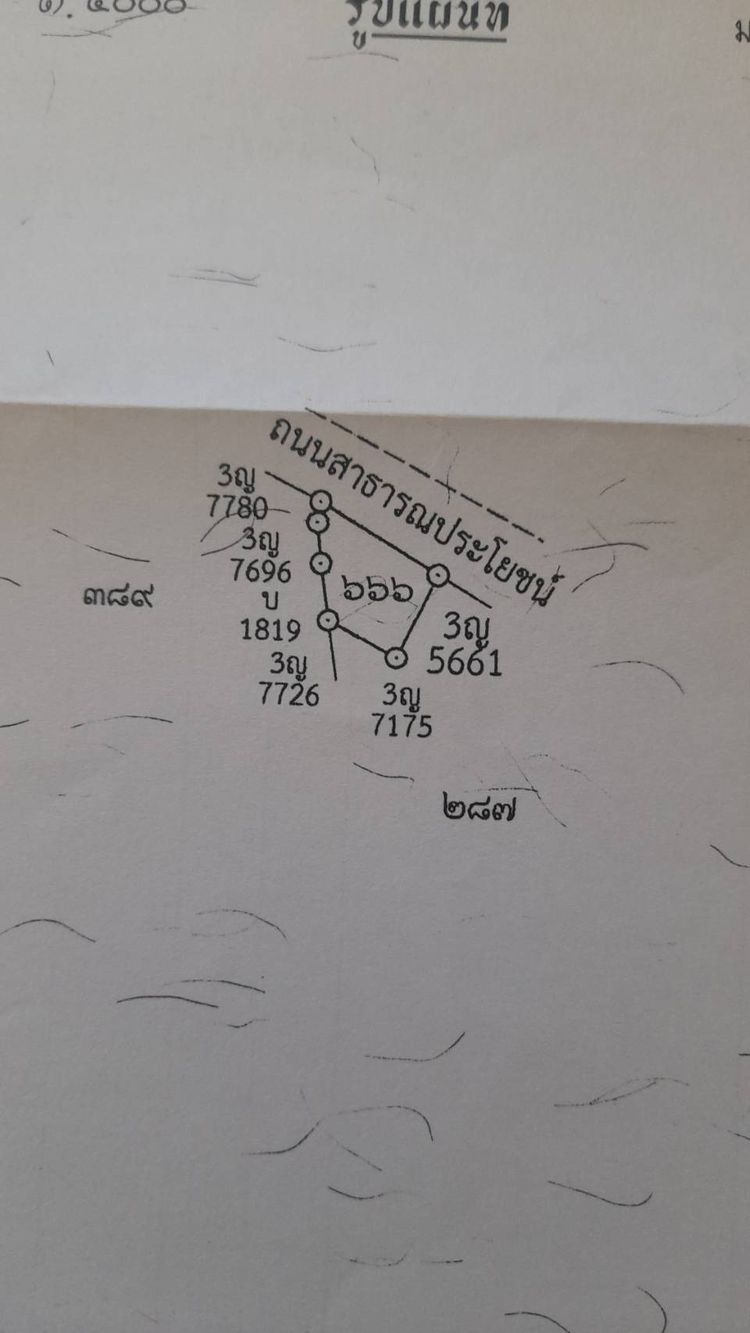 รูปแผนที่
ถนนสาธารณประโยชน์
3ญ
7780
3ญ
7696
บ
1819
3ญ
7726
๓๘๙
๖๖๖
3ญ
5661
3ญ
7175
๒๘๗